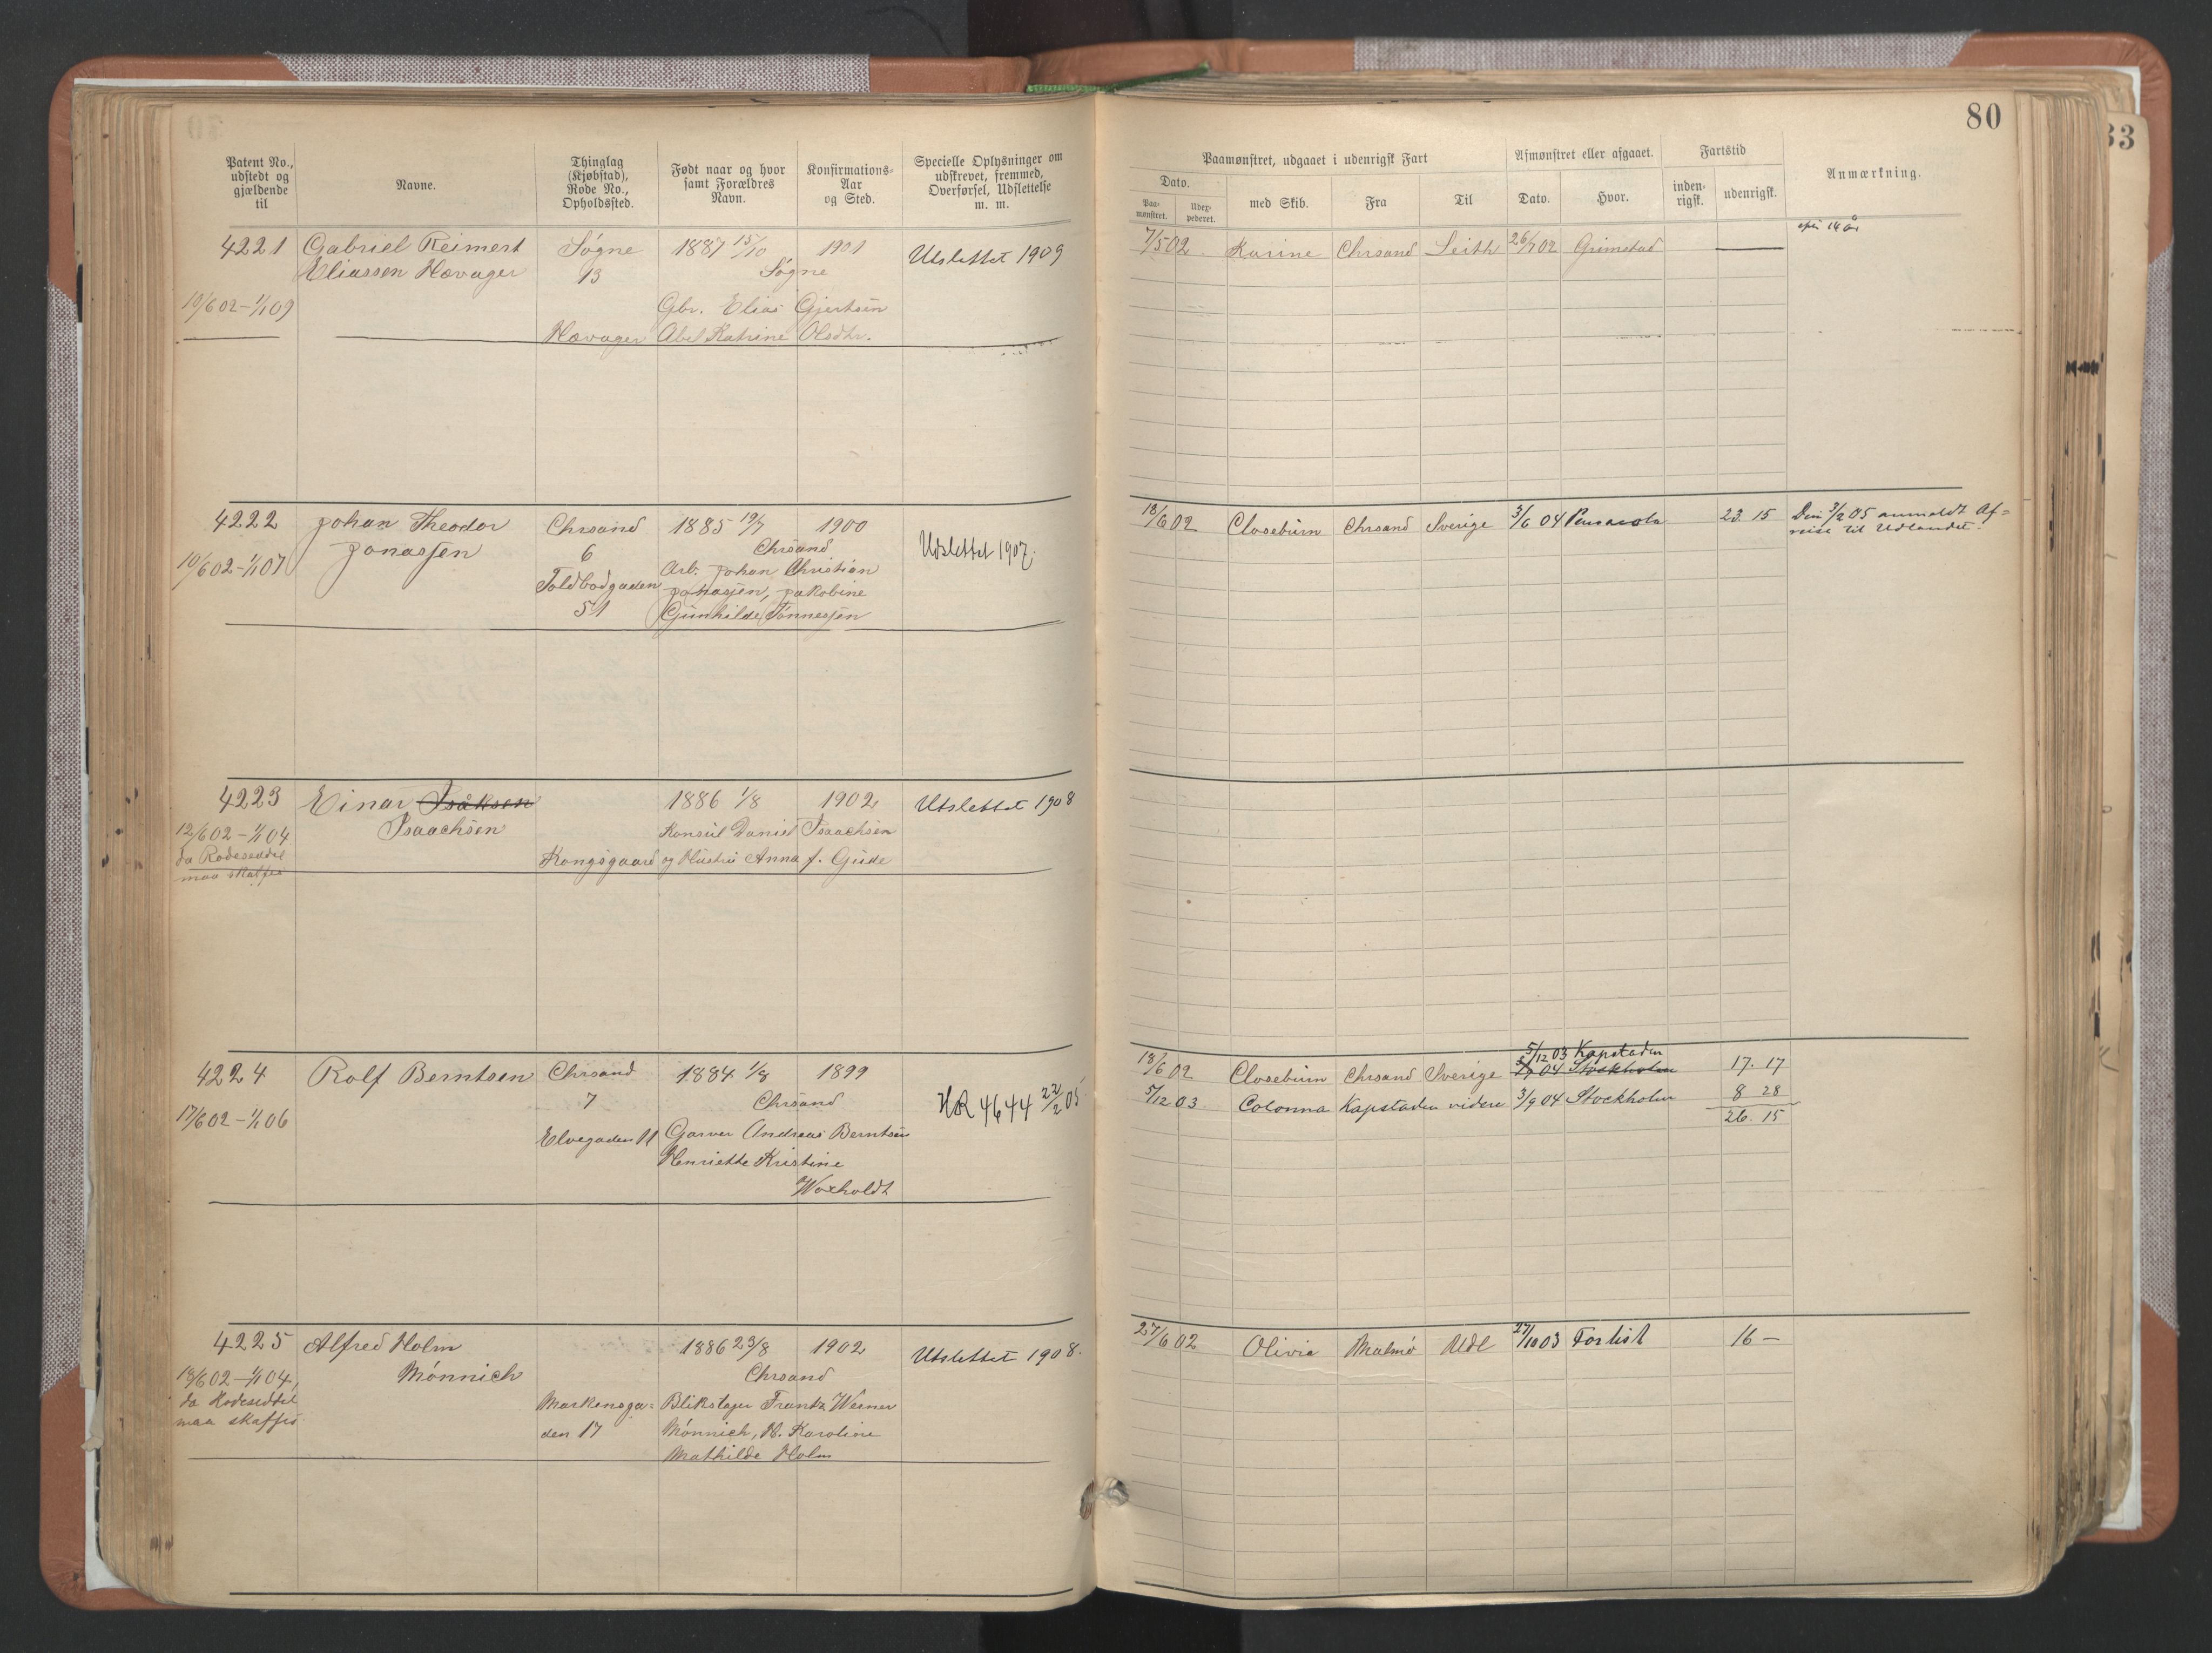 80
33
Patent No.,
udstedt og
gjældende
til
Navne.
Thinglag
(Kjøbstad),
Rode No.,
Opholdssted.
Født naar og hvor
samt Forældres
Navn.
Konfirmations-
Aar
og Sted.
Specielle Oplysninger om
udskrevet, fremmed,
Overførsel, Udslettelse
m. m.
Paamønstret, udgaaet i udenrigsk Fart
Dato.
Paa-
mønstret.
Udex-
pederet.
med Skib.
Fra
Til
Afmønstret eller afgaaet.
Dato.
Hvor.
Fartstid
inden-
rigsk.
udenrigsk.
Anmærkning.
4221 Gabriel Reimert Søgne 1887 15/10 1901 Utslettet 1909
Eliassen Hævager 13 Søgne
10/6 02 – 1/1 09 Gbr. Elias Gjertsen
Hævager Abel Katrine Olsdtr.
7/5 02 Karine Chrsand Leith 26/7 02 Grimstad —
14 år
4222 Johan Theodor Chrsand 1885 19/7 1900
Jonassen 6 Chrsand Udslettet 1907.
10/6 02 – 1/1 07 Toldbodgaden Arb. Johan Christian
51 Johasjen, Jakobine
Gunhilde Tønnessen
18/6 02 Closeburn Chrsand Sverige 3/6 04 Pensacola 23 15 Den 3/2 05 anmeldt Af=
reise til Udlandet.
4223 Einar Isaksen 1886 1/8 1902 Utslettet 1908
Isaachsen Konsul Daniel Isaachsen
12/6 02 – 1/1 04 Kongsgaard og Hustru Anna f. Gude
da Rodeseddel
maa skaffes
4224 Rolf Berntsen Chrsand 1884 1/8 1899
7 Chrsand HR 4644 22/2 05
17/6 02 – 1/1 06 Elvegaden 11 Garver Andreas Berntsen
Henriette Kristine
Woxholdt
5/12 03 Kapstaden
18/6 02 Closeburn Chrsand Sverige 04 Stockholm 17. 17
5/12 03 Colonna Kapstaden videre 3/9 04 Stockholm 8 28
26. 15
4225 Alfred Holm 1886 23/8 1902 Utslettet 1908.
Mønnich Chrsand
18/6 02 – 1/1 04, Markensga= Blikslager Frantz Werner
da Rodeseddel den 17 Mønnich, H. Karoline
maa skaffes Mathilde Holm
27/6 02 Olivia Malmø Udl 27/10 03 Forlist 16 –